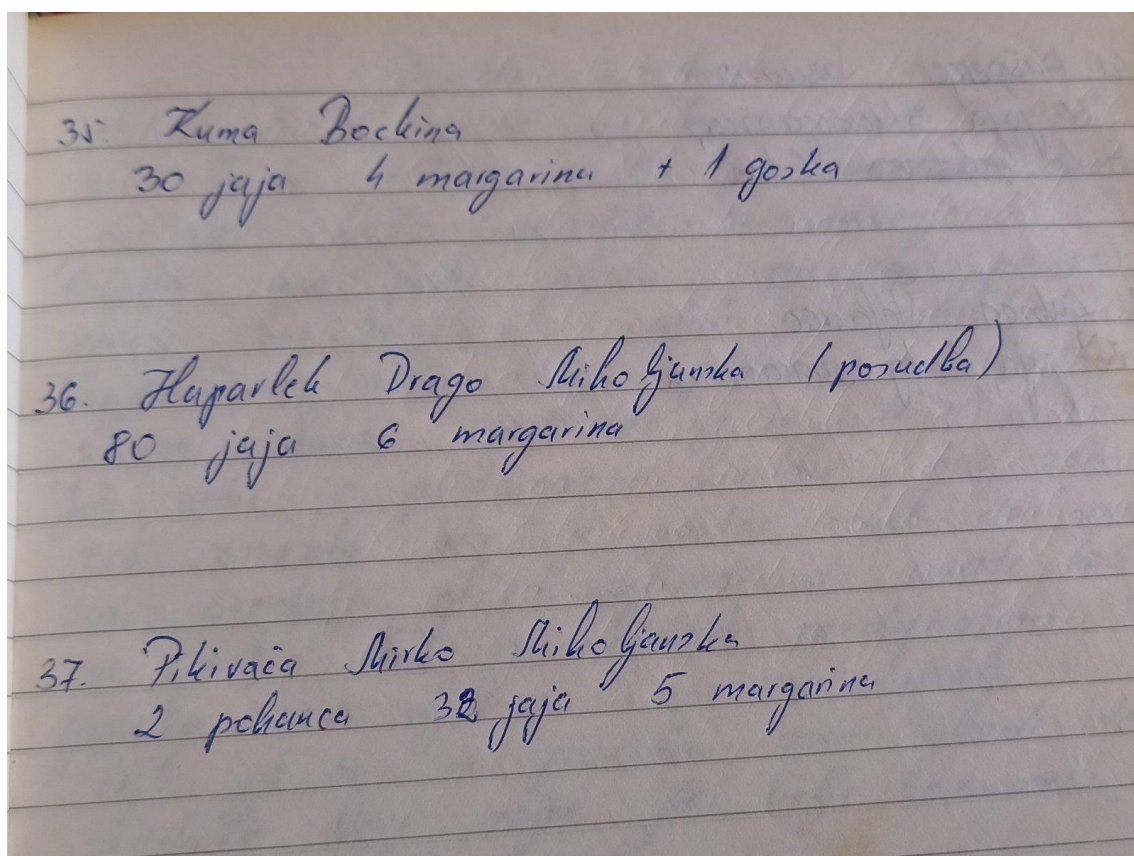 35. Kuma Bockina
30 jaja 4 margarina + 1 goska
36. Hlapavlek Drago Miholjanska (posudba)
80 jaja 6 margarina
37. Pikivača Mirko Miholjanska
2 pohanca 32 jaja 5 margarina